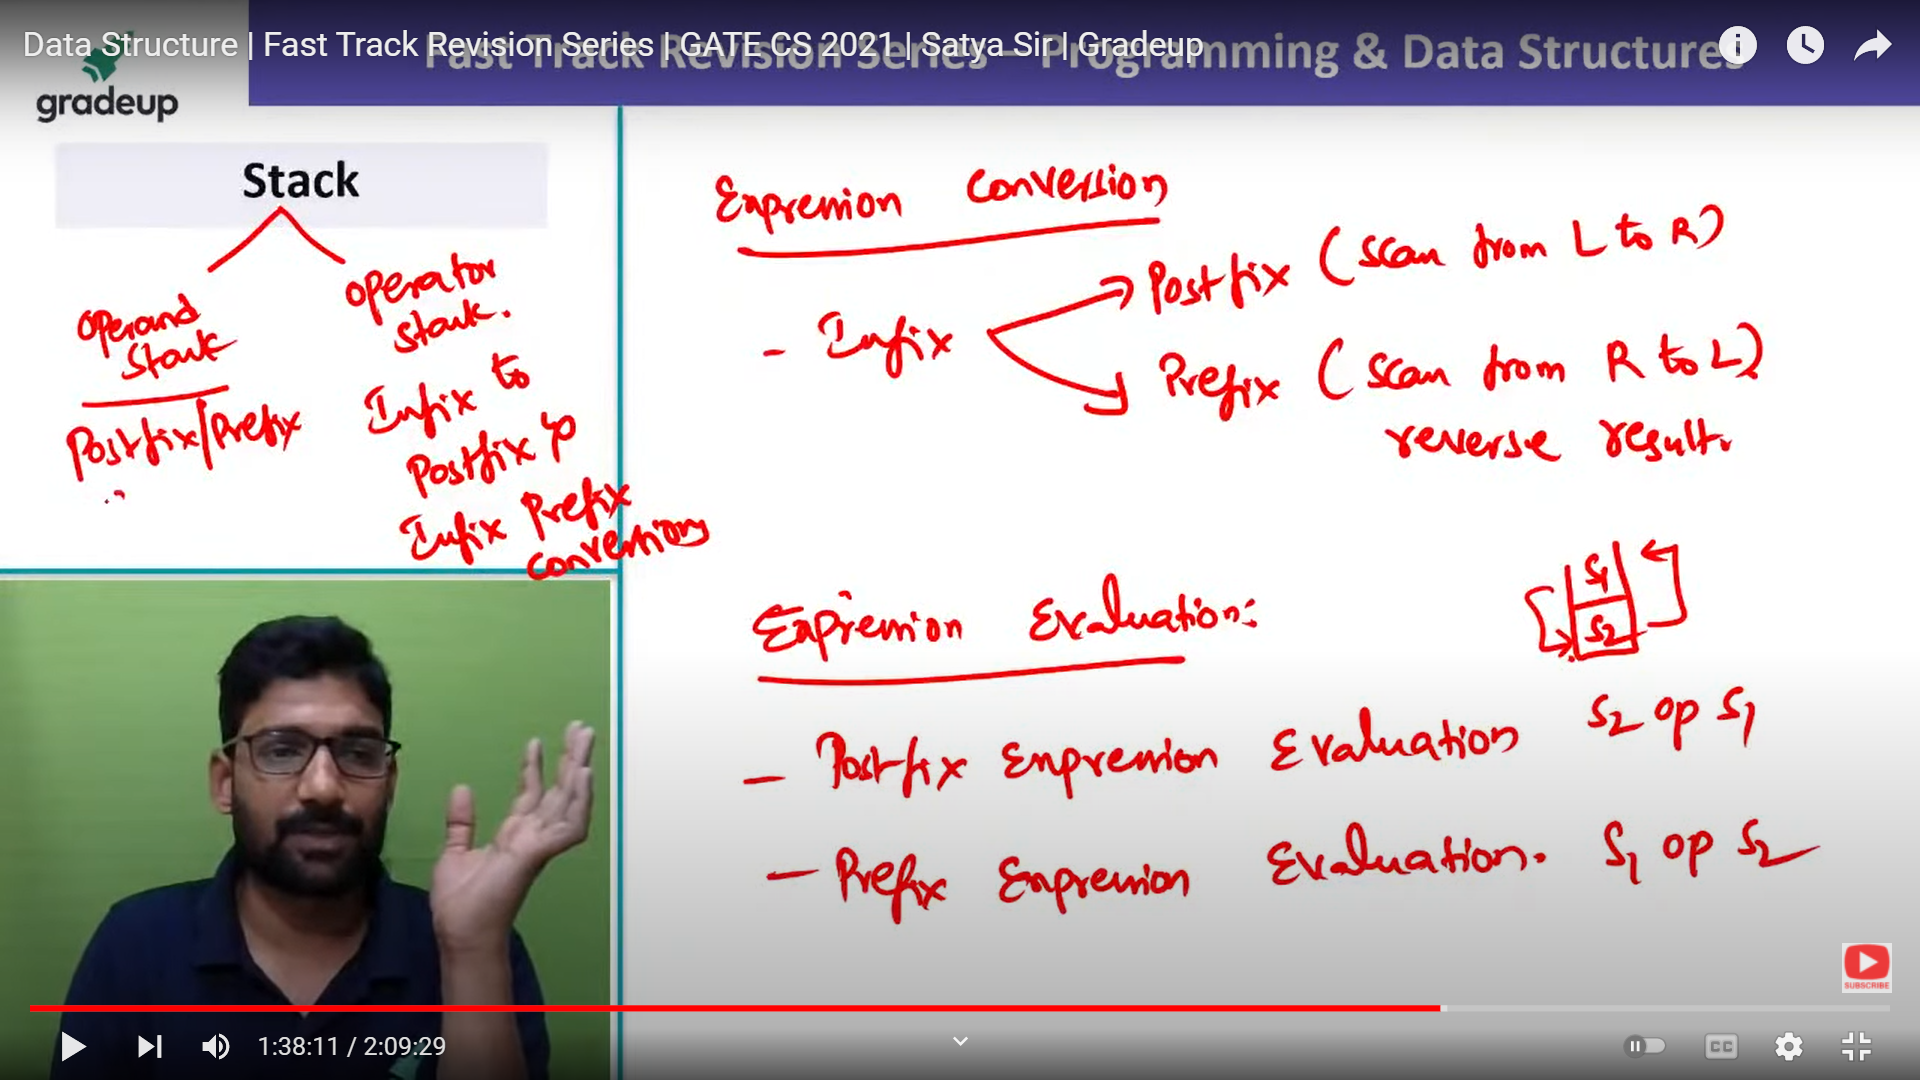 Data Structure | Fast Track Revision Series | GATE CS 2021 | Satya Sir | Gradeup
Fast Track Revision Series – Programming & Data Structures
gradeup
Stack
Operand Stack
Postfix/Prefix
Operator Stack.
Infix to
Postfix &
Infix Prefix
Conversions
Expression Conversion
- Infix
Postfix (Scan from L to R)
Prefix (Scan from R to L)
reverse result.
Expression Evaluation:
S1
S2
- Postfix Expression Evaluation S2 op S1
- Prefix Expression Evaluation. S1 op S2
SUBSCRIBE
1:38:11 / 2:09:29
CC